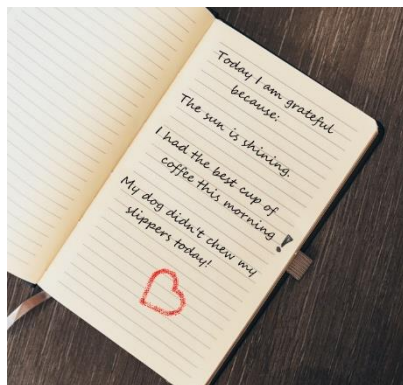 Today I am grateful
because:
The sun is shining.
I had the best cup of
coffee this morning!
My dog didn't chew my
slippers today!